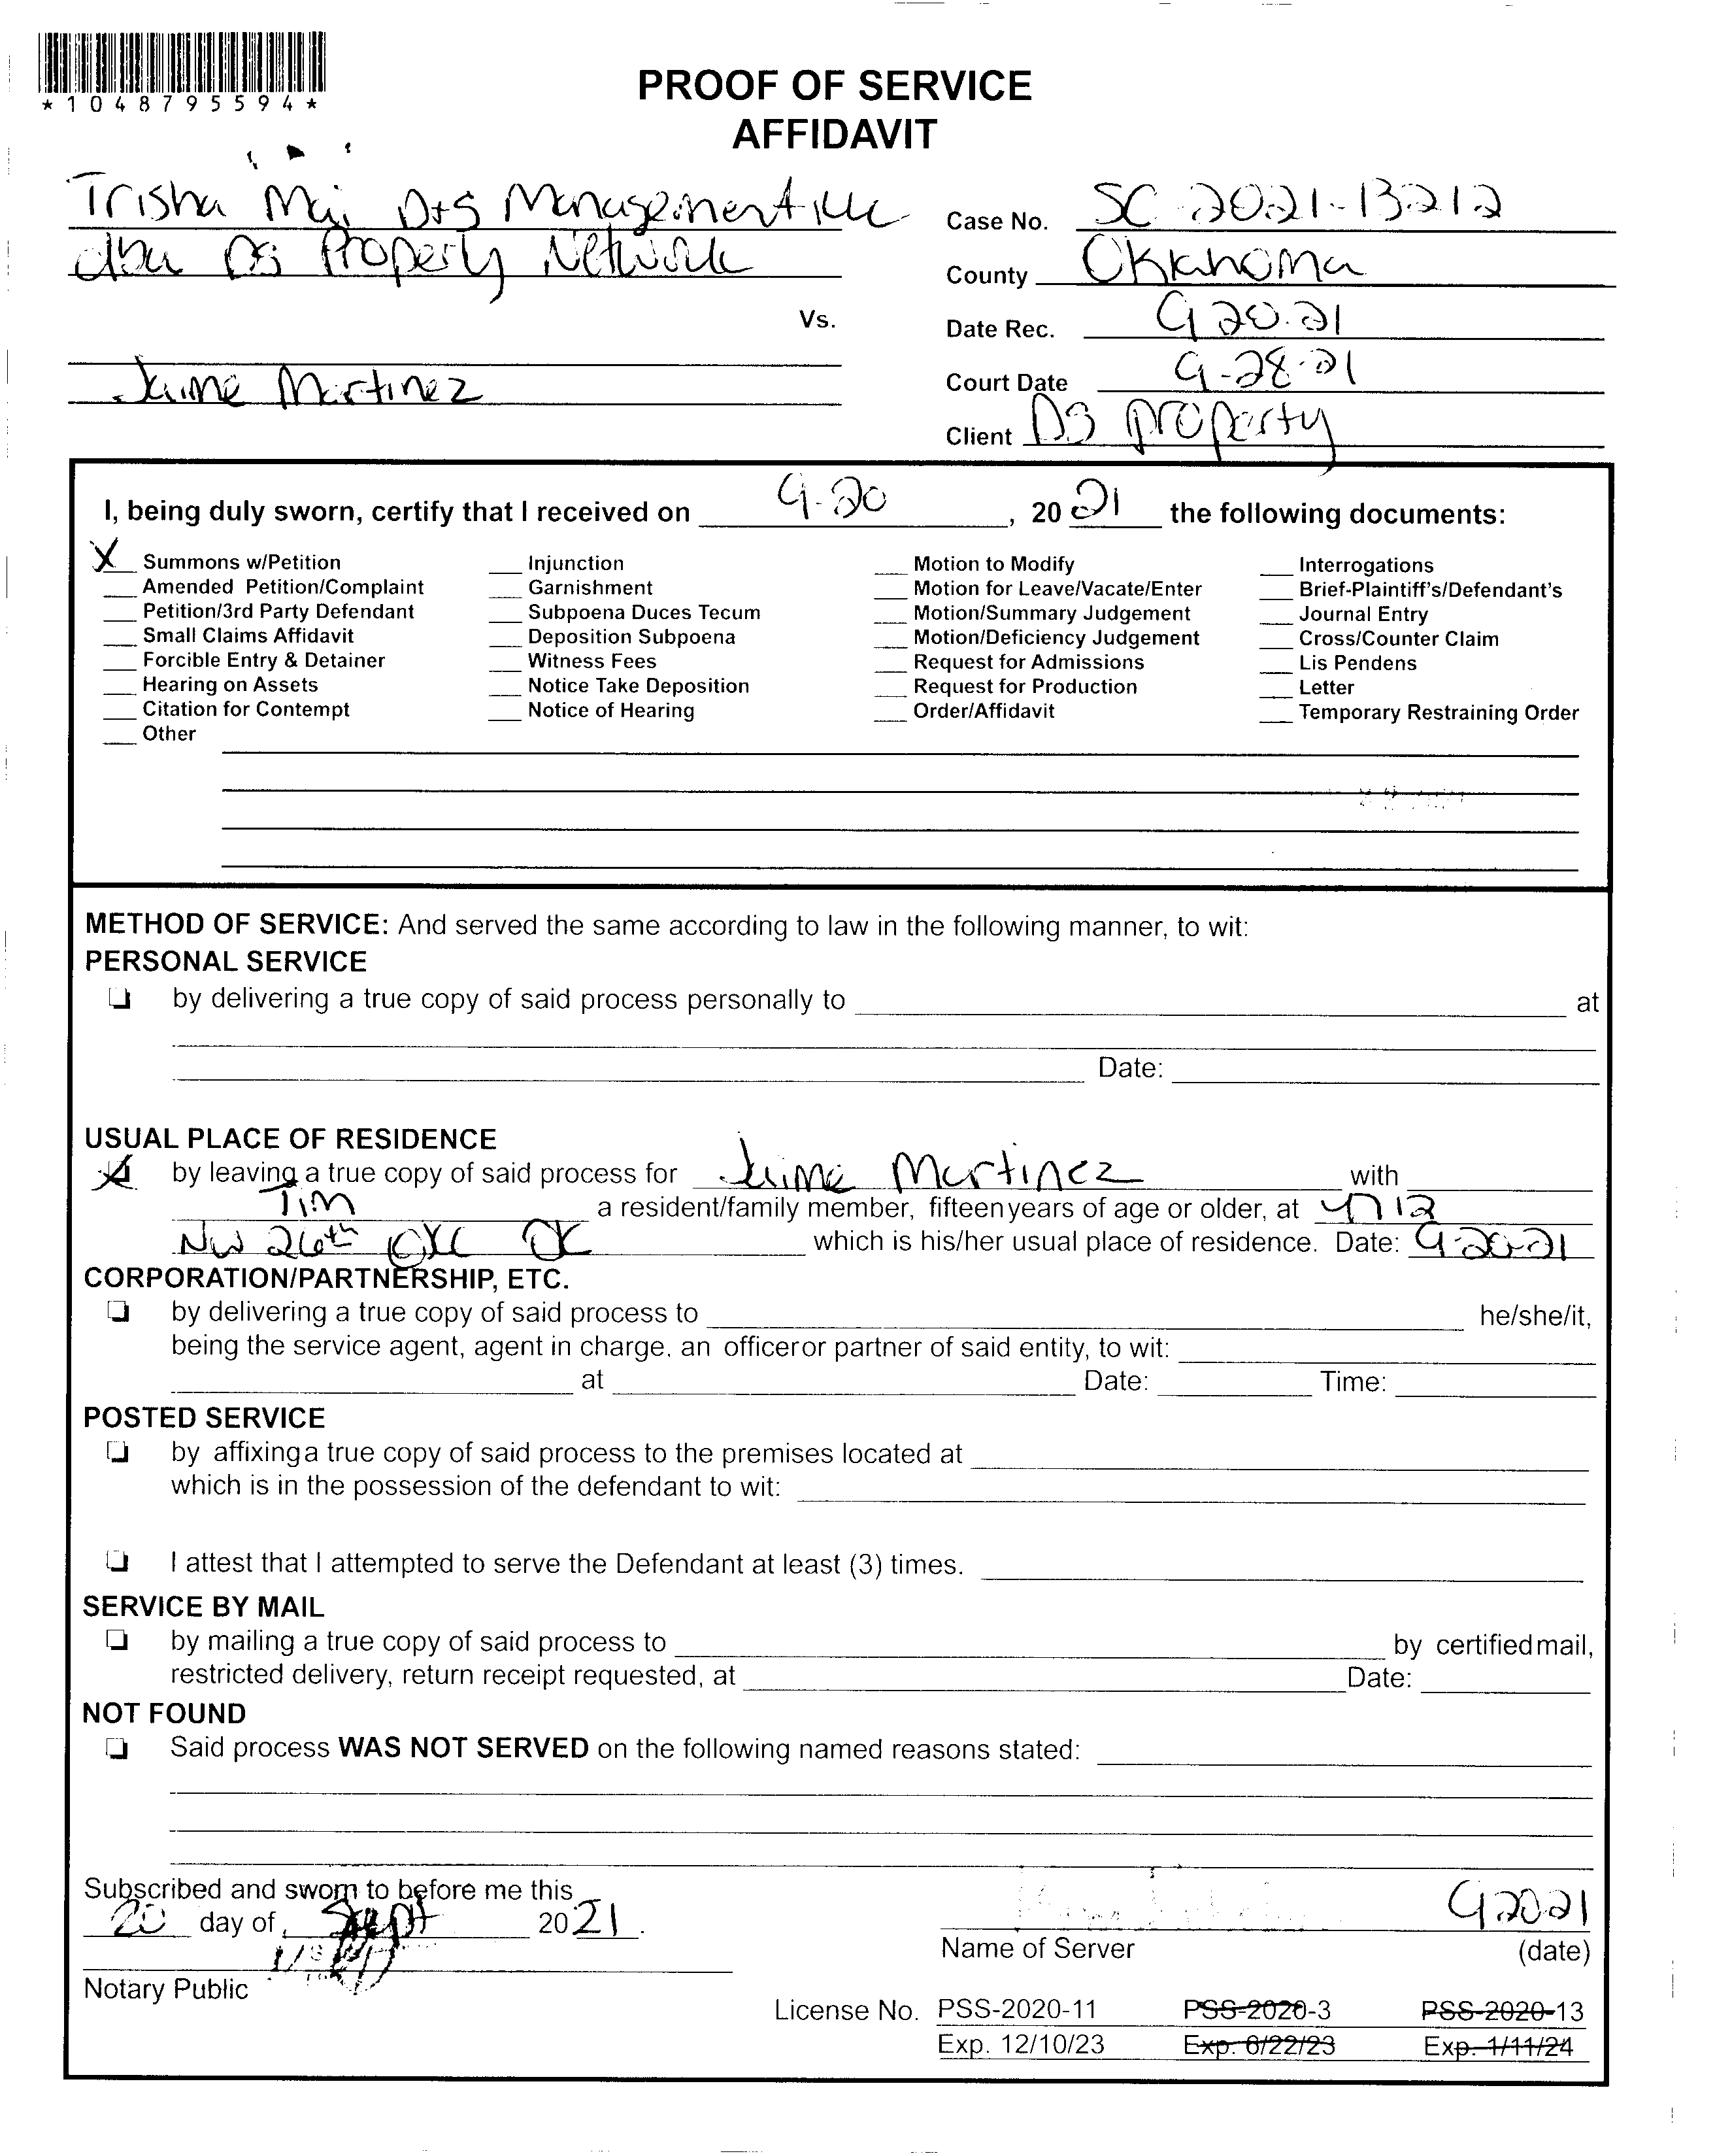 *1048795594*
PROOF OF SERVICE
AFFIDAVIT
Trisha Mai D+S Management LLC
dba DS Property Network
Vs.
Jaime Martinez
Case No. SC-2021-13212
County Oklahoma
Date Rec. 9 20.21
Court Date 9-28-21
Client DS property
I, being duly sworn, certify that I received on 9-20, 2021 the following documents:
X Summons w/Petition
Amended Petition/Complaint
Petition/3rd Party Defendant
Small Claims Affidavit
Forcible Entry & Detainer
Hearing on Assets
Citation for Contempt
Other
Injunction
Garnishment
Subpoena Duces Tecum
Deposition Subpoena
Witness Fees
Notice Take Deposition
Notice of Hearing
Motion to Modify
Motion for Leave/Vacate/Enter
Motion/Summary Judgement
Motion/Deficiency Judgement
Request for Admissions
Request for Production
Order/Affidavit
Interrogations
Brief-Plaintiff's/Defendant's
Journal Entry
Cross/Counter Claim
Lis Pendens
Letter
Temporary Restraining Order
METHOD OF SERVICE: And served the same according to law in the following manner, to wit:
PERSONAL SERVICE
by delivering a true copy of said process personally to at
Date:
USUAL PLACE OF RESIDENCE
by leaving a true copy of said process for Jaime Martinez with
Tim a resident/family member, fifteen years of age or older, at 4712
NW 26th OKC OK which is his/her usual place of residence. Date: 9-20-21
CORPORATION/PARTNERSHIP, ETC.
by delivering a true copy of said process to he/she/it,
being the service agent, agent in charge, an officer or partner of said entity, to wit:
at Date: Time:
POSTED SERVICE
by affixing a true copy of said process to the premises located at
which is in the possession of the defendant to wit:
I attest that I attempted to serve the Defendant at least (3) times.
SERVICE BY MAIL
by mailing a true copy of said process to by certified mail,
restricted delivery, return receipt requested, at Date:
NOT FOUND
Said process WAS NOT SERVED on the following named reasons stated:
Subscribed and sworn to before me this
20 day of Sept 2021.
Notary Public
9 20 21
Name of Server (date)
License No. PSS-2020-11 PSS-2020-3 PSS-2020-13
Exp. 12/10/23 Exp. 6/22/23 Exp. 1/11/24